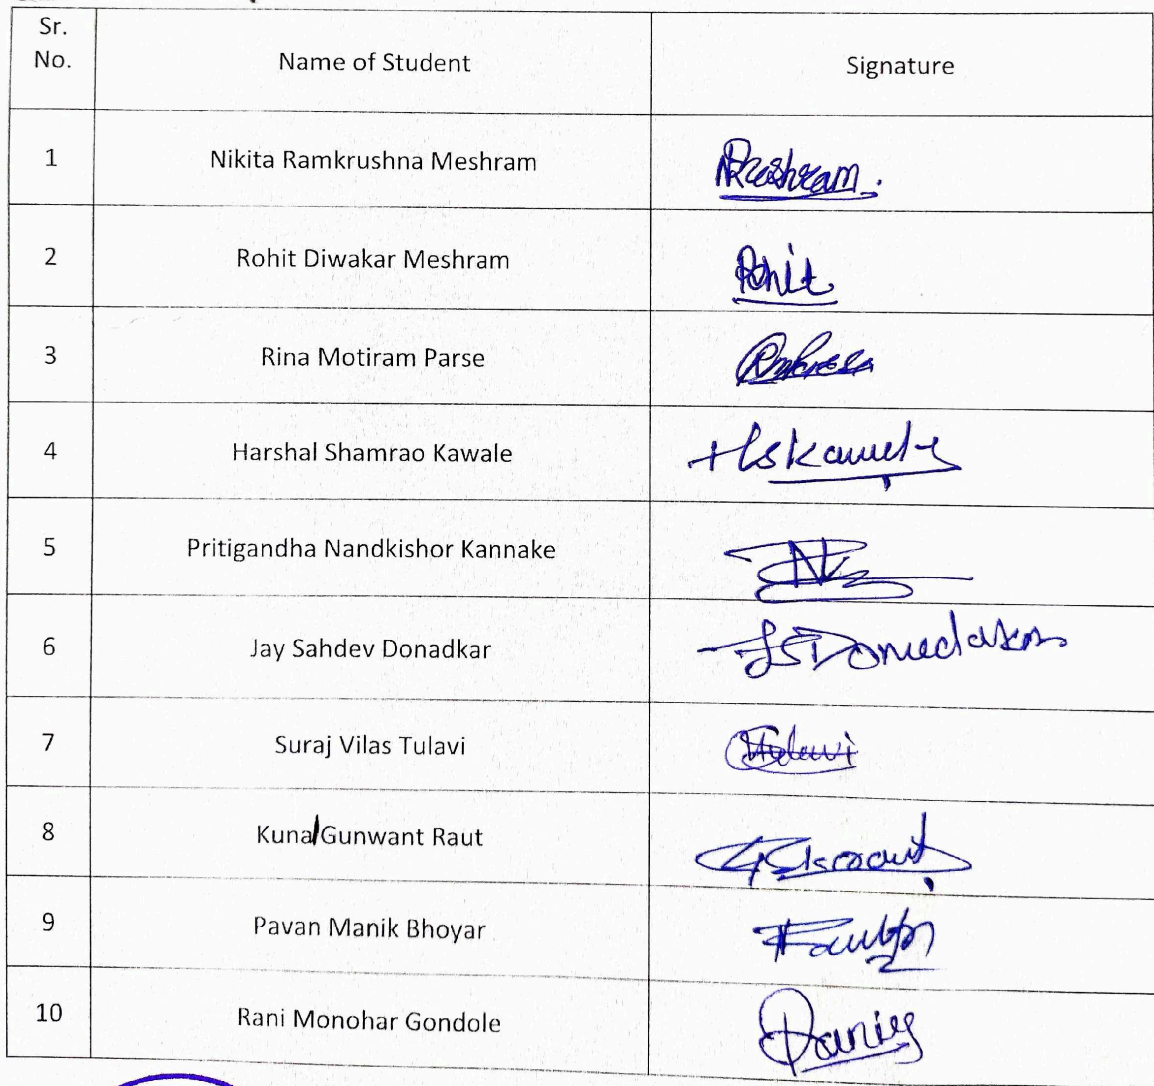 Sr. No. Name of Student Signature
1 Nikita Ramkrushna Meshram
2 Rohit Diwakar Meshram Rohit
3 Rina Motiram Parse
4 Harshal Shamrao Kawale
5 Pritigandha Nandkishor Kannake
6 Jay Sahdev Donadkar
7 Suraj Vilas Tulavi
8 Kunal Gunwant Raut
9 Pavan Manik Bhoyar
10 Rani Monohar Gondole